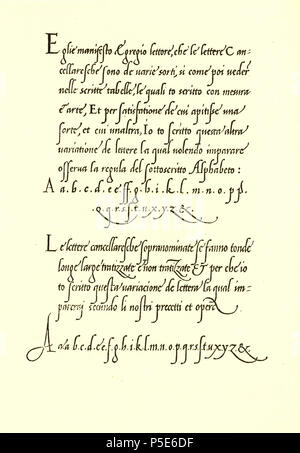 Eglie manifesto Egregio lettore, che le lettere Can-
cellaresche sono de varie sorti, si come poi veder
nelle scritte tabelle, le quali to scritto con mesura
e arte, Et per satisfatione de cui apitisse una
sorte, et cui unaltra, Io to scritto questa altra
variatione de lettere la qual volendo imparare
osserva la regula del sottoscritto Alphabeto:
A a.b.c.d.e.e.f.g.h.i.k.l.m.n.o.p.
q.r.s.t.u.x.y.z.&.
Le lettere cancellaresche sopranominate se fanno tonde
longe large tratizzate e non tratizzate Et per che io
to scritto questa variacione de lettera la qual im-
pararai secundo li nostri precetti et opera
A a.b.c.d.e.e.f.g.h.i.k.l.m.n.o.p.q.r.s.t.u.x.y.z.&.
alamy
Image ID: P5E6DF
www.alamy.com